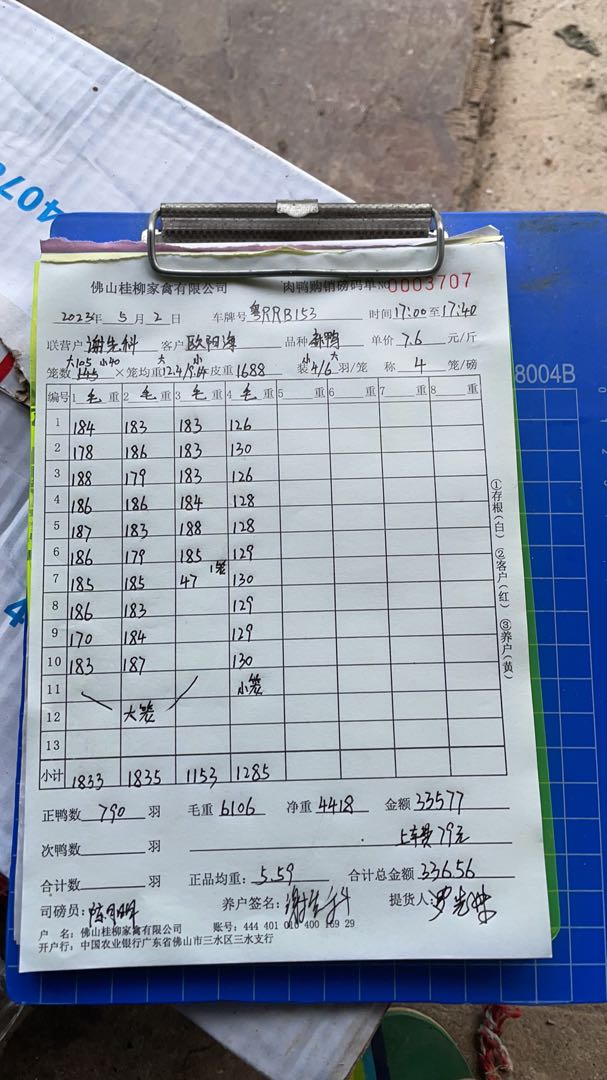 4078
佛山桂柳家禽有限公司 肉鸭购销磅码单 No 0003707
2023年 5月 2日 车牌号 粤RRB153 时间 17:00 至 17:40
联营户 谢生科 客户 欧阳海 品种 单价 7.6 元/斤
大105 小40 大 小 小 大
笼数 145 ×笼均重 12.4/9.64 皮重 1688 装 4/6 羽/笼 称 4 笼/磅
编号 1 毛 重 2 毛 重 3 毛 重 4 毛 重 5 重 6 重 7 重 8 重
1 184 183 183 126
2 178 186 183 130
3 188 179 183 126
4 186 186 184 128
5 187 183 188 128
6 186 179 185 129
7 185 185 47 1笼 130
8 186 183 129
9 170 184 129
10 183 187 130
11 小笼
12 大笼
13
小计 1833 1835 1153 1285
正鸭数 790 羽 毛重 6106 净重 4418 金额 33577
次鸭数 羽 上车费79元
合计数 羽 正品均重: 5.59 合计总金额 33656
司磅员: 养户签名: 谢生科 提货人:
户 名: 佛山桂柳家禽有限公司 账号: 444 401 010 400 169 29
开户行: 中国农业银行广东省佛山市三水区三水支行
①存根(白) ②客户(红) ③养户(黄)
8004B